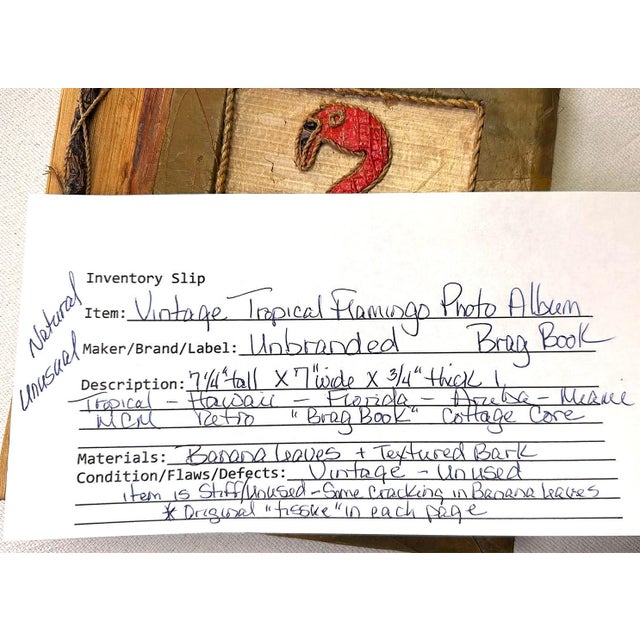 Natural
Unusual
Inventory Slip
Item: Vintage Tropical Flamingo Photo Album
Maker/Brand/Label: Unbranded Brag Book
Description: 7 1/4" tall X 7" wide X 3/4" thick
Tropical - Hawaii - Florida - Aruba - Miami
MCM Retro "Brag Book" Cottage Core
Materials: Banana Leaves + Textured Bark
Condition/Flaws/Defects: Vintage - Unused
item is Stiff/Unused - Some Cracking in Banana leaves
* Original "tissue" in each page